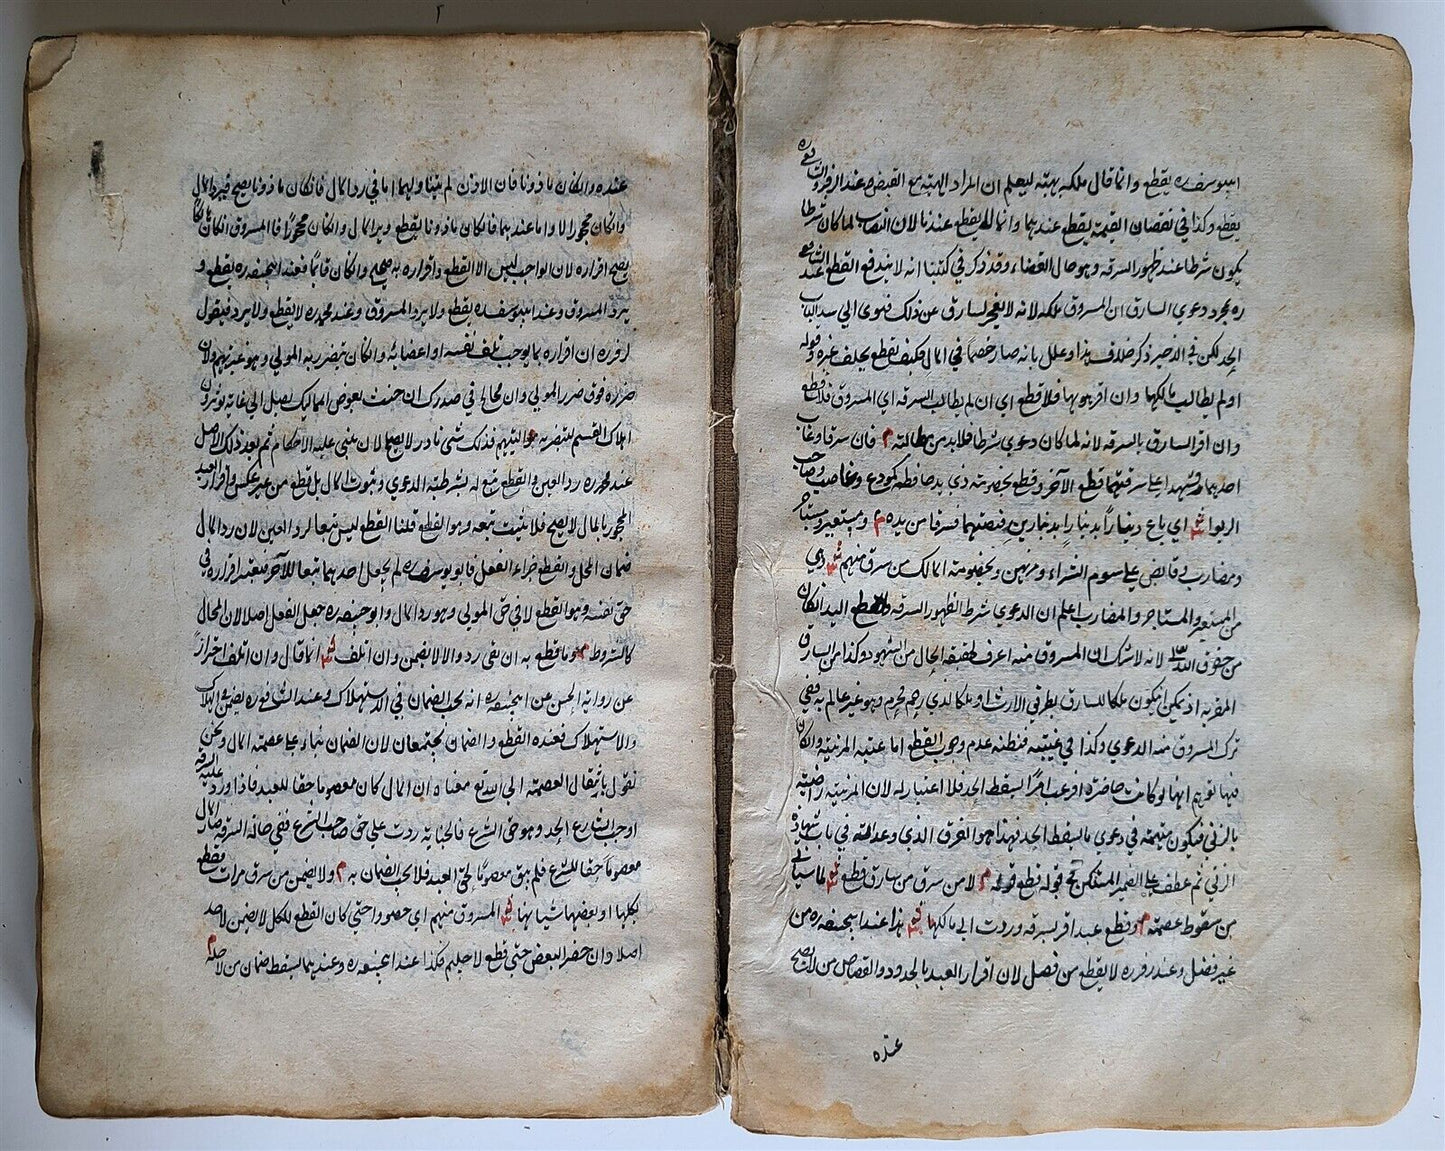 ابيوسف ره يقطع وانما قال ملكه بهبته ليعلم ان المراد الهبة مع القبض عند زفر والشافعي ره
يقطع وكذا في نقصان القيمة يقطع عندهما وانما لا يقطع عندنا لان النصاب لما كان شرطا
يكون شرطا عند ظهور السرقة وهو حال القضاء وقد ذكر في كتبنا انه لا يندفع القطع عند الشافعي
ره بمجرد دعوي السارق ان المسروق ملكه لانه لا يعجز سارق عن ذلك فيؤدي الي سد باب
الحد لكن في ذكر خلاف هذا وعلل بانه صار خصما في المال فكيف يقطع بحلف غيره وقوله
او لم يطالب مالكها وان اقر هو بها فلا قطع اي ان لم يطالب السرقة اي المسروق فلا قطع
وان اقر السارق بالسرقة لانه لما كان دعوي شرطا فلا بد من مطالبته م فان سرقا وغاب
احدهما وشهد علي سرقتهما قطع الآخر وقطع بخصومة ذي يد حافظة كمودع وغاصب وصاحب
الربوا ش اي باع دينارا بدينارين فقبضهما فسرقا من يده م ومستعير ومستاجر
ومضارب وقابض علي سوم الشراء ومرتهن وبخصومة المالك من سرق منهم ش
من المستعير والمستاجر والمضارب اعلم ان الدعوي شرط لظهور السرقة وقطع اليد ان كان
من حقوق الله تعالى لانه لا شك ان المسروق منه اعرف بحقيقة الحال من الشهود وكذا من السارق
المقر به اذ يمكن ان يكون ملكا للسارق بطريق الارث او ملكا لذي رحم محرم وهو غير عالم به ففي
ترك المسروق منه الدعوي وكذا في غيبته مظنة عدم وجوب القطع اما غيبة المزنية وان كان
فيها توهم انها لو كانت حاضرة ادعت امرا يسقط الحد فلا اعتبار له لان المزنية راضية
بالزني فيكون متهمة في دعوي ما يسقط الحد فهذا هو الفرق الذي وعدته في باب شهادة
الزني ثم عطف علي الضمير المستكن في قوله قطع قوله م لا من سرق من سارق قطع ش لما سياتي
من سقوط عصمته م وقطع عبد اقر بسرقة وردت الي مالكها ش هذا عند ابيحنيفة ره من
غير فصل وعند زفر ره لا يقطع من فصل لان اقرار العبد بالحدود والقصاص لا يصح
عنده
عنده وان كان ماذونا فان الاذن لم يتناولهما اما في رد المال فان كان ماذونا يصح فيرد المال
وان كان محجورا لا واما عندهما فان كان ماذونا يقطع ويرد المال وان كان محجورا فالمسروق ان كان هالكا
يصح اقراره لان الواجب ليس الا القطع واقراره به صحيح وان كان قائما فعند ابيحنيفة ره يقطع و
يرد المسروق وعند ابيوسف ره يقطع ولا يرد المسروق وعند محمد ره لا يقطع ولا يرد فيقول
زفر ره ان اقراره بما يوجب تلف نفسه او اعضائه وان كان يتضرر به المولي وهو غير متهم لان
ضرره فوق ضرر المولي وان
اهلاك النفس للتضرر به فذلك شئ نادر لا يصح لان تبتني عليه الاحكام ثم بعد ذلك الاصل
عند محمد ره رد العين والقطع تبع له بشرطية الدعوي وثبوت المال بل قطع من غير عكس واقرار العبد
المحجور بالمال لا يصح فلا يثبت تبعه وهو القطع قلنا القطع ليس تبعا لرد العين لان رد المال
ضمان المحل والقطع جزاء الفعل فابويوسف ره لم يجعل احدهما تبعا للآخر فيعتبر اقراره في
حق نفسه وهو القطع لا في حق المولي وهو رد المال وابوحنيفة ره جعل الفعل اصلا لان المحال
كالشروط م وما قطع به ان بقي رد والا لا يضمن وان اتلف ش انما قال وان اتلف احترازا
عن رواية الحسن عن ابيحنيفة ره انه يجب الضمان في الاستهلاك وعند الشافعي ره يضمن في الهلاك
والاستهلاك فعنده القطع والضمان يجتمعان لان الضمان بناء علي عصمة المال ونحن
نقول بانتقال العصمة الي الله تع معناه ان المال كان معصوما حقا للعبد فاذا ورد عليه السرقة
اوجب الشارع الحد وهو حق الشرع فالجناية ردت علي حق صاحب الشرع ففي حالة السرقة صار المال
معصوما حقا للشرع فلم يبق معصوما لحق العبد فلا يجب الضمان به م ولا يضمن من سرق مرات فقطع
بكلها او بعضها شيا منها ش المسروق منهم اي حضروا حتي كان القطع للكل لا يضمن لاحد
اصلا وان حضر البعض حتي قطع لاجلهم فكذا عند ابيحنيفة ره وعندهما يسقط ضمان من لاجله